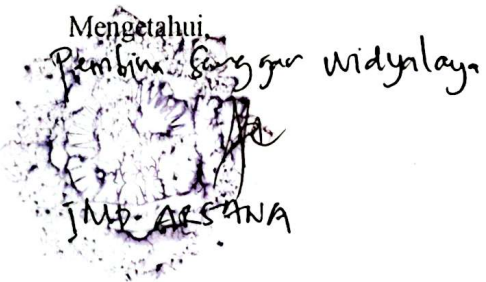 Mengetahui,
Pembina Sanggar Widyalaya
IMD. ARSANA